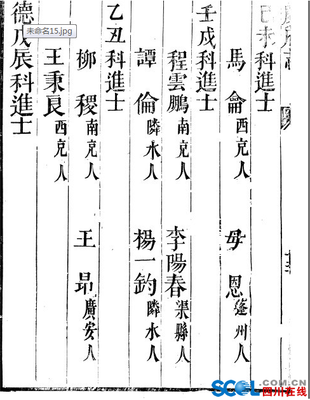 己未科進士
馬龠 西充人 毋恩 蓬州人
壬戌科進士
程雲鵬 南充人 李陽春 渠縣人
譚倫 隣水人 楊一鈞 隣水人
乙丑科進士
柳稷 南充人 王昂 廣安人
王秉良 西充人
德戊辰科進士
未命名15.jpg
SCOL.COM.CN
四川在线